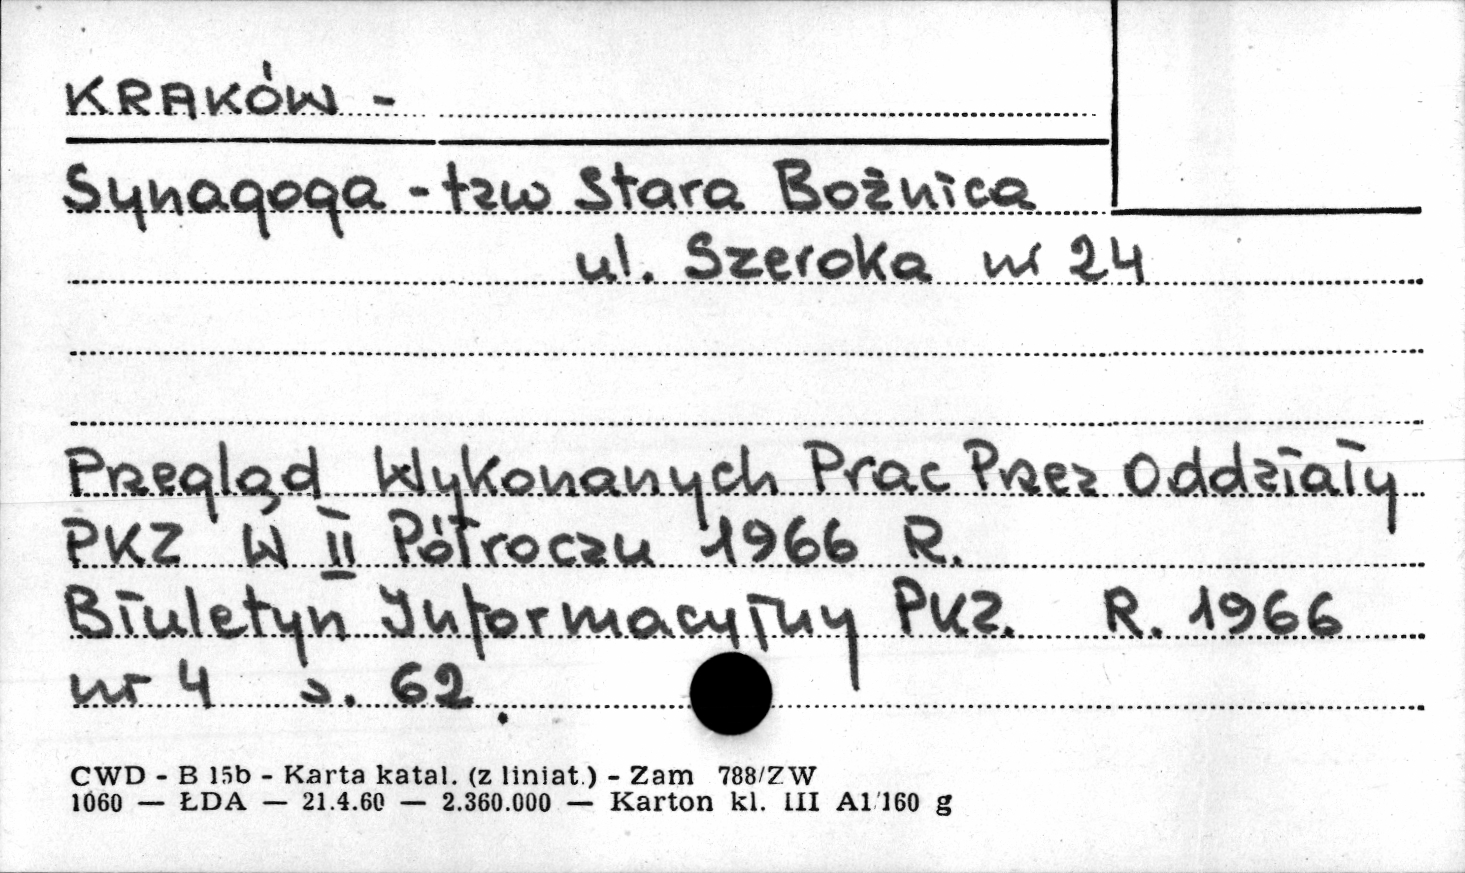 KRAKÓW -
Synagoga - tzw Stara Bożnica
ul. Szeroka nr 24
Przegląd Wykonanych Prac Przez Oddziały
PKZ W II Półroczu 1966 R.
Biuletyn Informacyjny PKZ. R. 1966
nr 4 s. 62.
CWD - B 15b - Karta katal. (z liniat.) - Zam 788/ZW
1060 — ŁDA — 21.4.60 — 2.360.000 — Karton kl. III A1/160 g